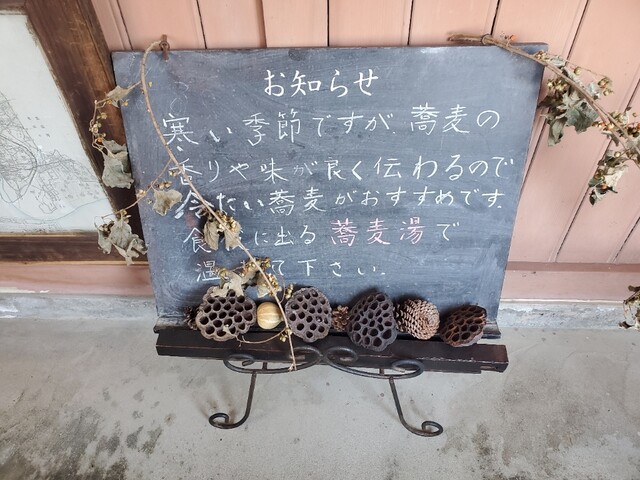 お知らせ
寒い季節ですが、蕎麦の
香りや味が良く伝わるので
冷たい蕎麦がおすすめです。
食 に出る蕎麦湯で
温 て下さい。